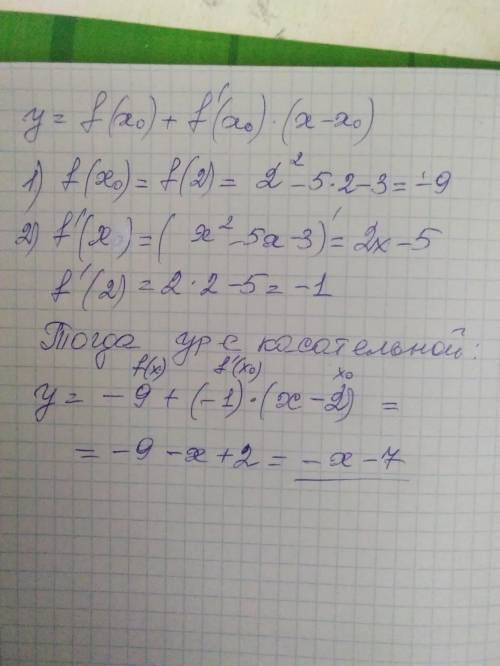 y = f(x₀) + f'(x₀)·(x-x₀)
1) f(x₀) = f(2) = 2² - 5·2 - 3 = -9
2) f'(x₀) = (x² - 5x - 3)' = 2x - 5
f'(2) = 2·2 - 5 = -1
Тогда ур-е касательной:
f(x) f'(x₀) x₀
y = -9 + (-1)·(x - 2) =
= -9 - x + 2 = -x - 7